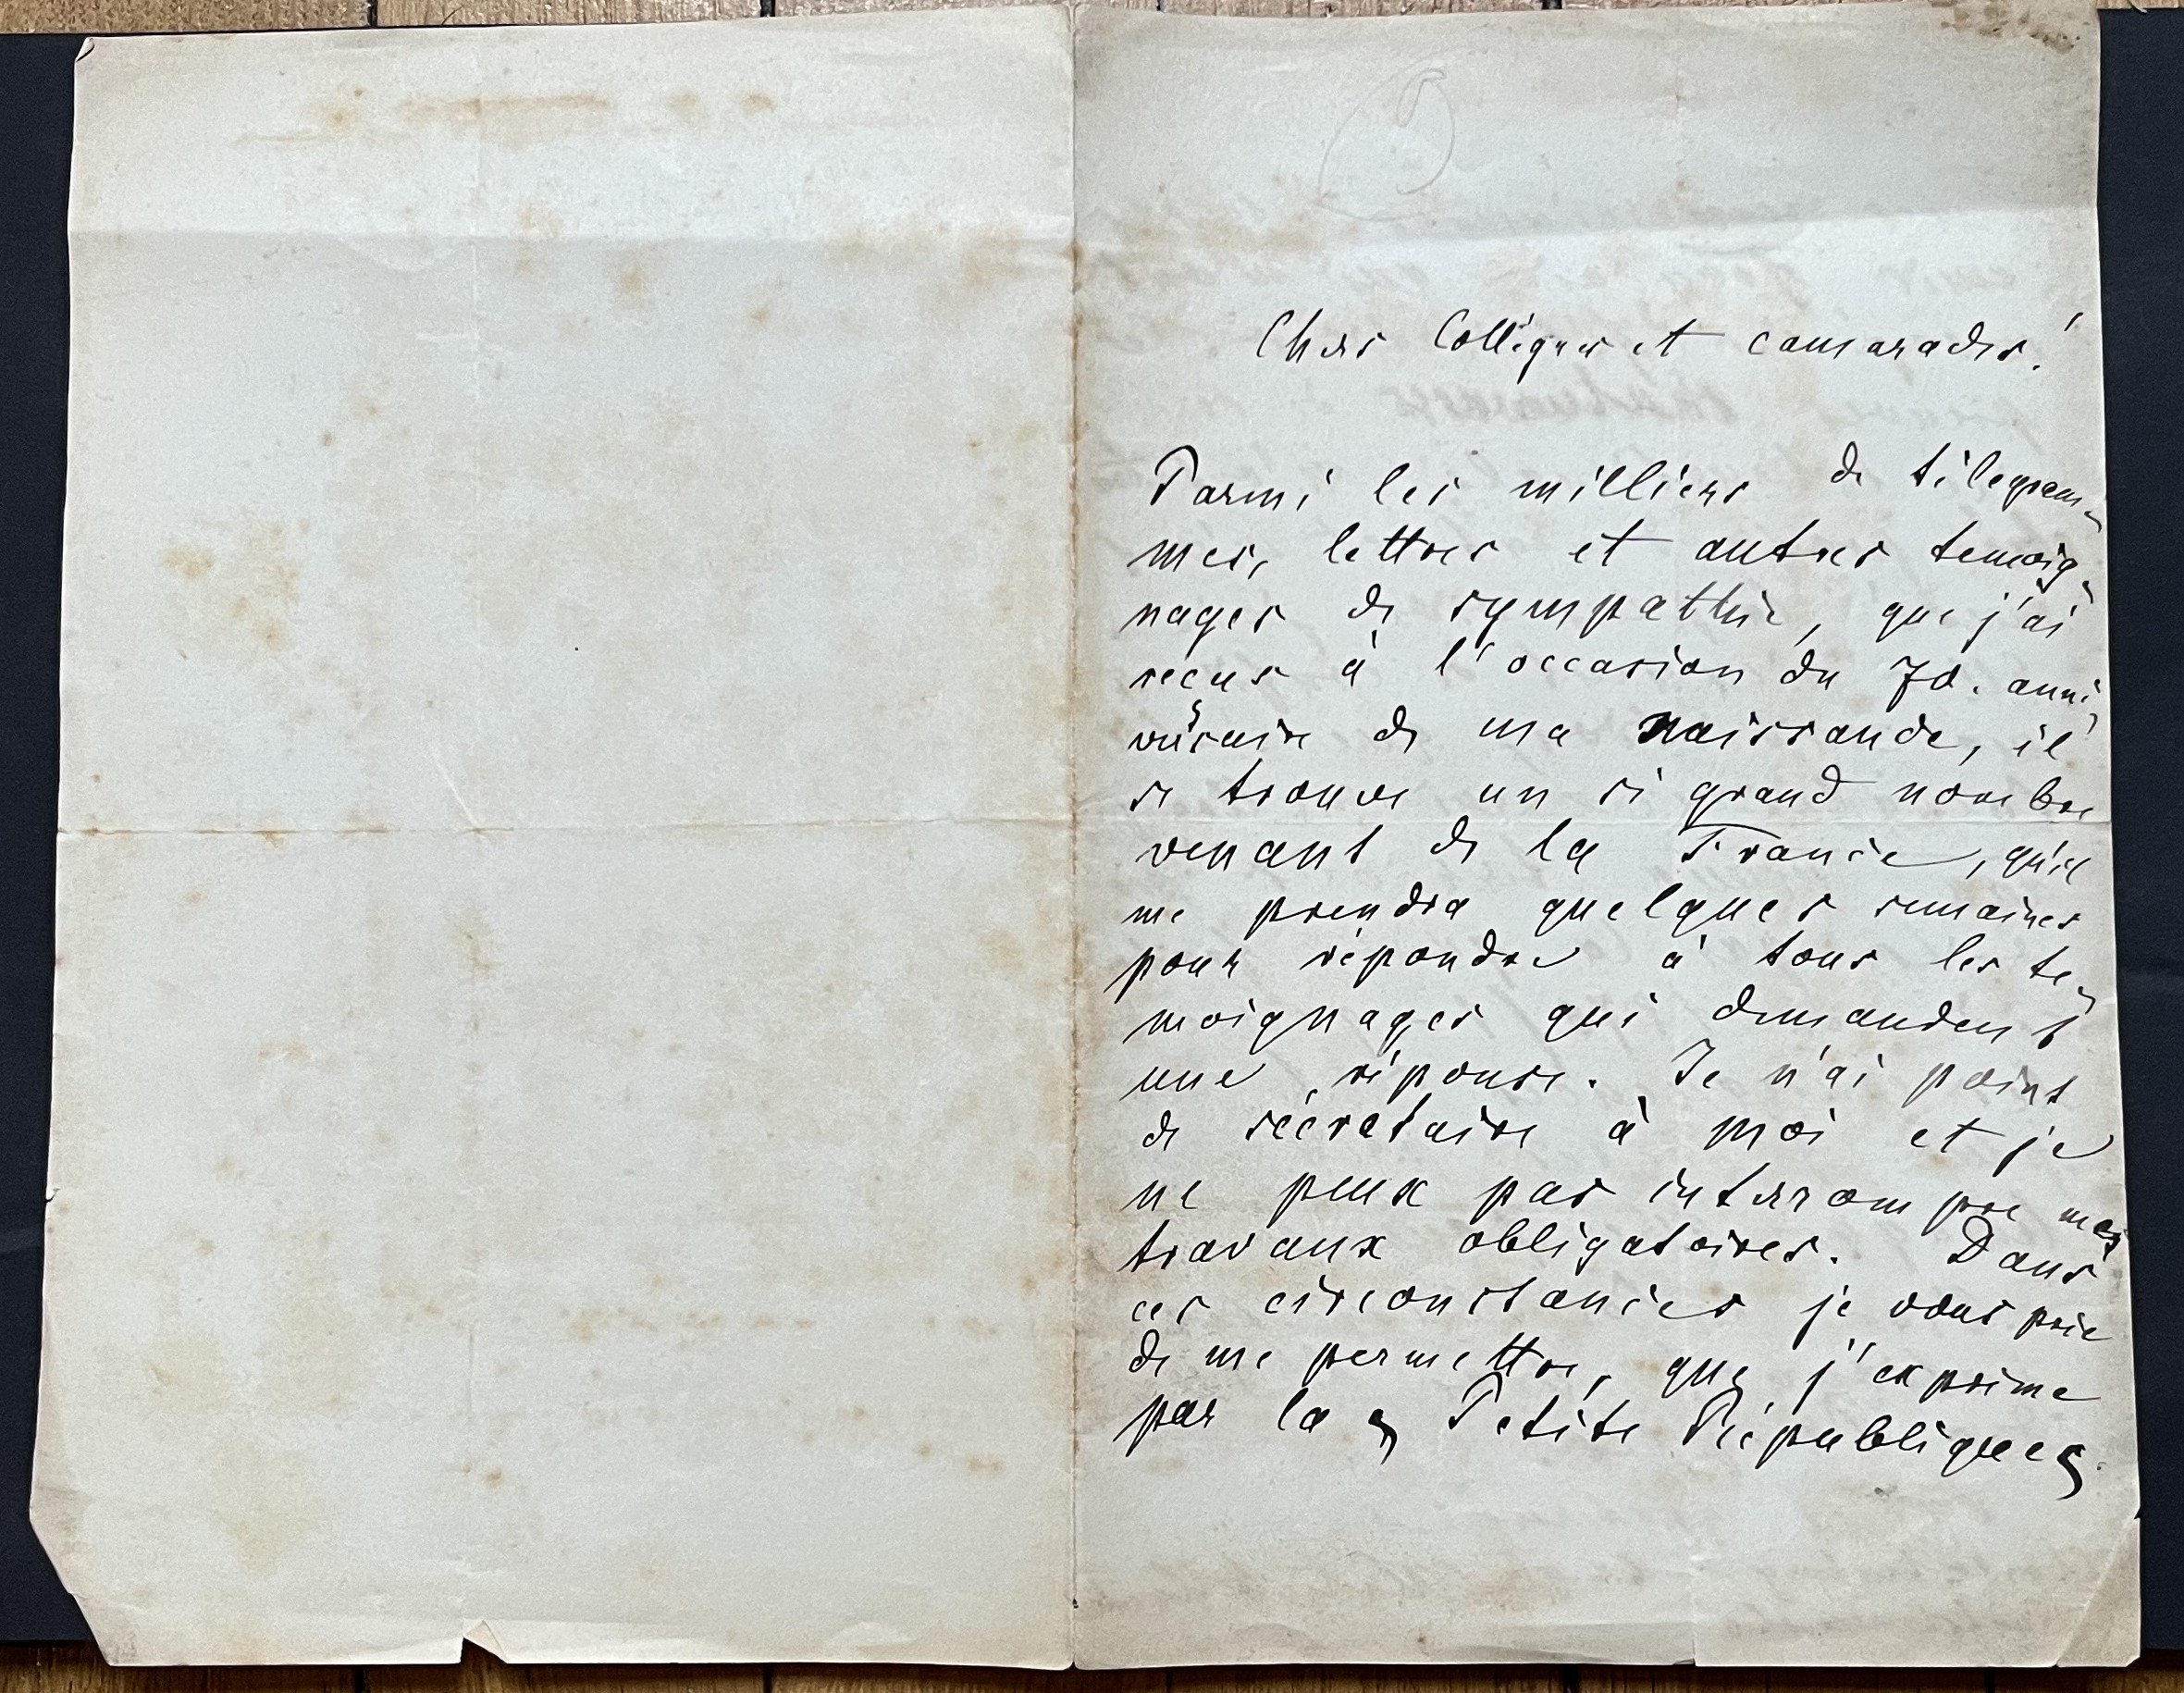 Chers Collègues et camarades!
Parmi les milliers de télegram-
mes, lettres et autres temoig-
nages de sympathie, que j'ai
reçus à l'occasion du 70. anni-
versaire de ma naissance, il
se trouve un si grand nombre
venant de la France, qu'il
me prendra quelques semaines
pour répondre à tous les te-
moignages qui demandent
une réponse. Je n'ai point
de sécretaire à moi et je
ne peux pas interrompre mes
travaux obligatoires. Dans
ces circonstances je vous prie
de me permettre, que j'exprime
par la „Petite République„